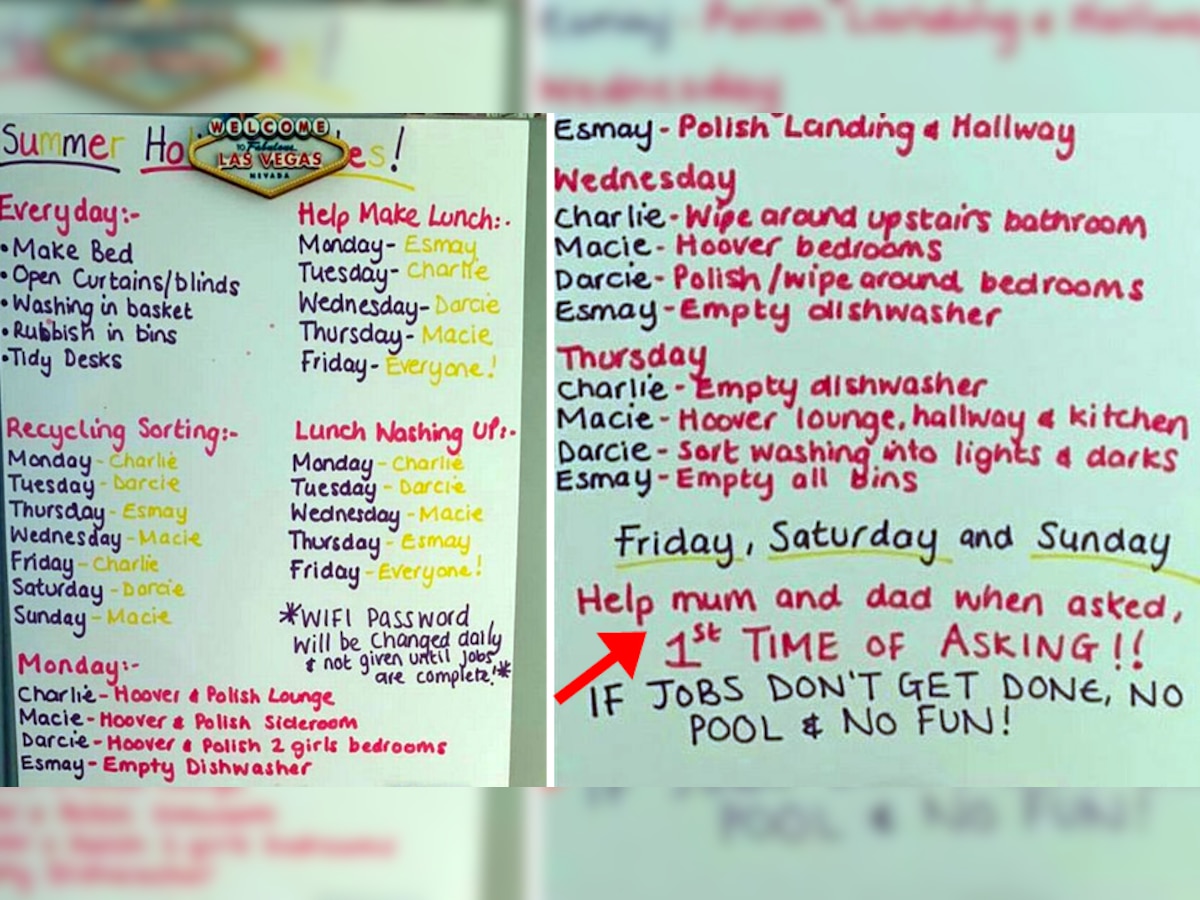 Summer Ho es!
WELCOME
TO Fabulous
LAS VEGAS
NEVADA
Everyday:-
•Make Bed
•Open Curtains/blinds
•Washing in basket
•Rubbish in bins
•Tidy Desks
Help Make Lunch:-
Monday- Esmay
Tuesday- Charlie
Wednesday- Darcie
Thursday- Macie
Friday- Everyone!
Recycling Sorting:-
Monday - Charlie
Tuesday - Darcie
Thursday - Esmay
Wednesday - Macie
Friday - Charlie
Saturday - Darcie
Sunday - Macie
Lunch Washing Up:-
Monday - Charlie
Tuesday - Darcie
Wednesday - Macie
Thursday - Esmay
Friday - Everyone!
*WIFI PASSWORD
Will be Changed daily
& not given until Jobs
are complete!*
Monday:-
Charlie - Hoover & Polish Lounge
Macie - Hoover & Polish Sideroom
Darcie - Hoover & Polish 2 girls bedrooms
Esmay - Empty Dishwasher
Esmay - Polish Landing & Hallway
Wednesday
Charlie - Wipe around upstairs bathroom
Macie - Hoover bedrooms
Darcie - Polish/wipe around bedrooms
Esmay - Empty dishwasher
Thursday
Charlie - Empty dishwasher
Macie - Hoover lounge, hallway & kitchen
Darcie - Sort washing into lights & darks
Esmay - Empty all Bins
Friday, Saturday and Sunday
Help mum and dad when asked,
1st TIME OF ASKING!!
IF JOBS DON'T GET DONE, NO
POOL & NO FUN!